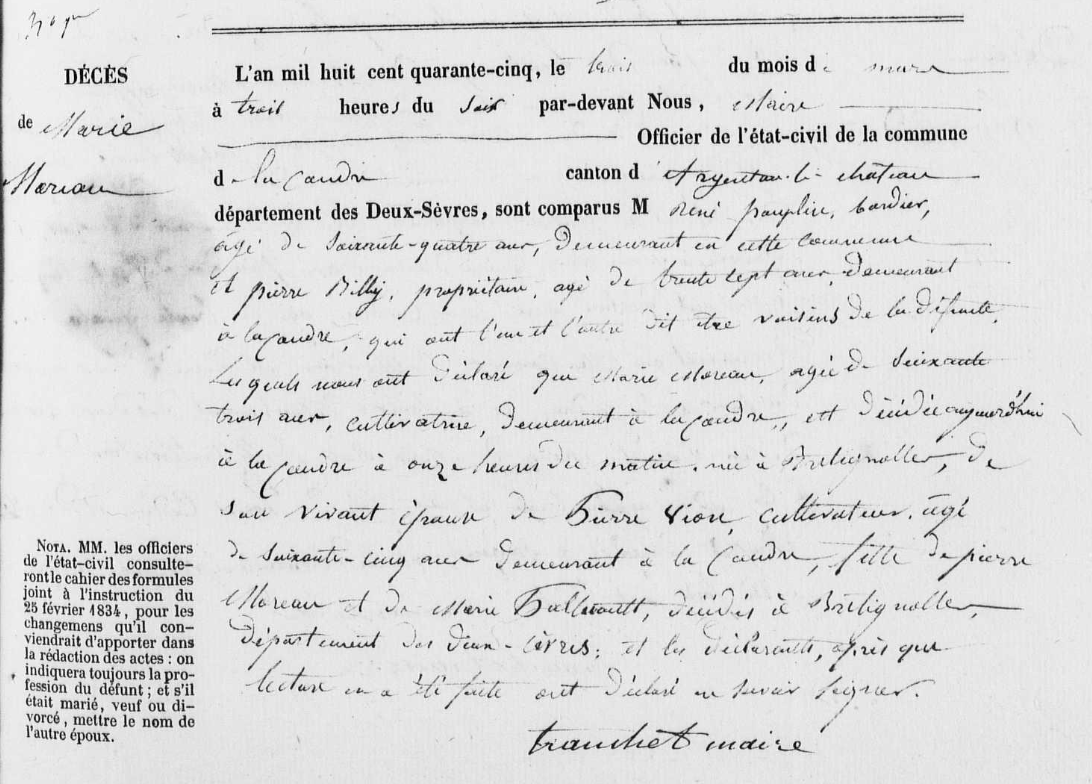 DÉCÈS
de Marie
Moreau
L'an mil huit cent quarante-cinq, le trois du mois de mars
à trois heures du soir par-devant Nous, Maire
Officier de l'état-civil de la commune
de la Coudre canton d'Argenton-le-château
département des Deux-Sèvres, sont comparus M René bordier,
âgé de soixante-quatre ans, demeurant en cette commune
et pierre Billy, propriétaire, agé de trente sept ans, demeurant
à la Coudre, qui ont l'un et l'autre dit être voisins de la défunte,
les quels nous ont déclaré que Marie Moreau, agée de soixante
trois ans, cultivatrice, demeurant à la Coudre, est décédée aujourd'hui
à la Coudre à onze heures du matin, née à Bretignolles, de
son vivant épouse de Pierre Vion, cultivateur, âgé
de soixante-cinq ans demeurant à la Coudre, fille de pierre
Moreau et de Marie décédés à Bretignolles,
département des deux-sèvres; et les déclarants, après que
lecture en a été faite ont déclaré ne savoir signer.
tranchet maire
NOTA. MM. les officiers
de l'état-civil consulte-
ront le cahier des formules
joint à l'instruction du
25 février 1834, pour les
changemens qu'il con-
viendrait d'apporter dans
la rédaction des actes : on
indiquera toujours la pro-
fession du défunt ; et s'il
était marié, veuf ou di-
vorcé, mettre le nom de
l'autre époux.